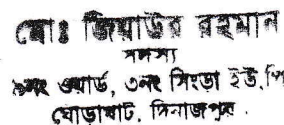 মোঃ জিয়াউর রহমান
সদস্য
৯নং ওয়ার্ড, ৩নং সিংড়া ইউ,পি
ঘোড়াঘাট, দিনাজপুর ।